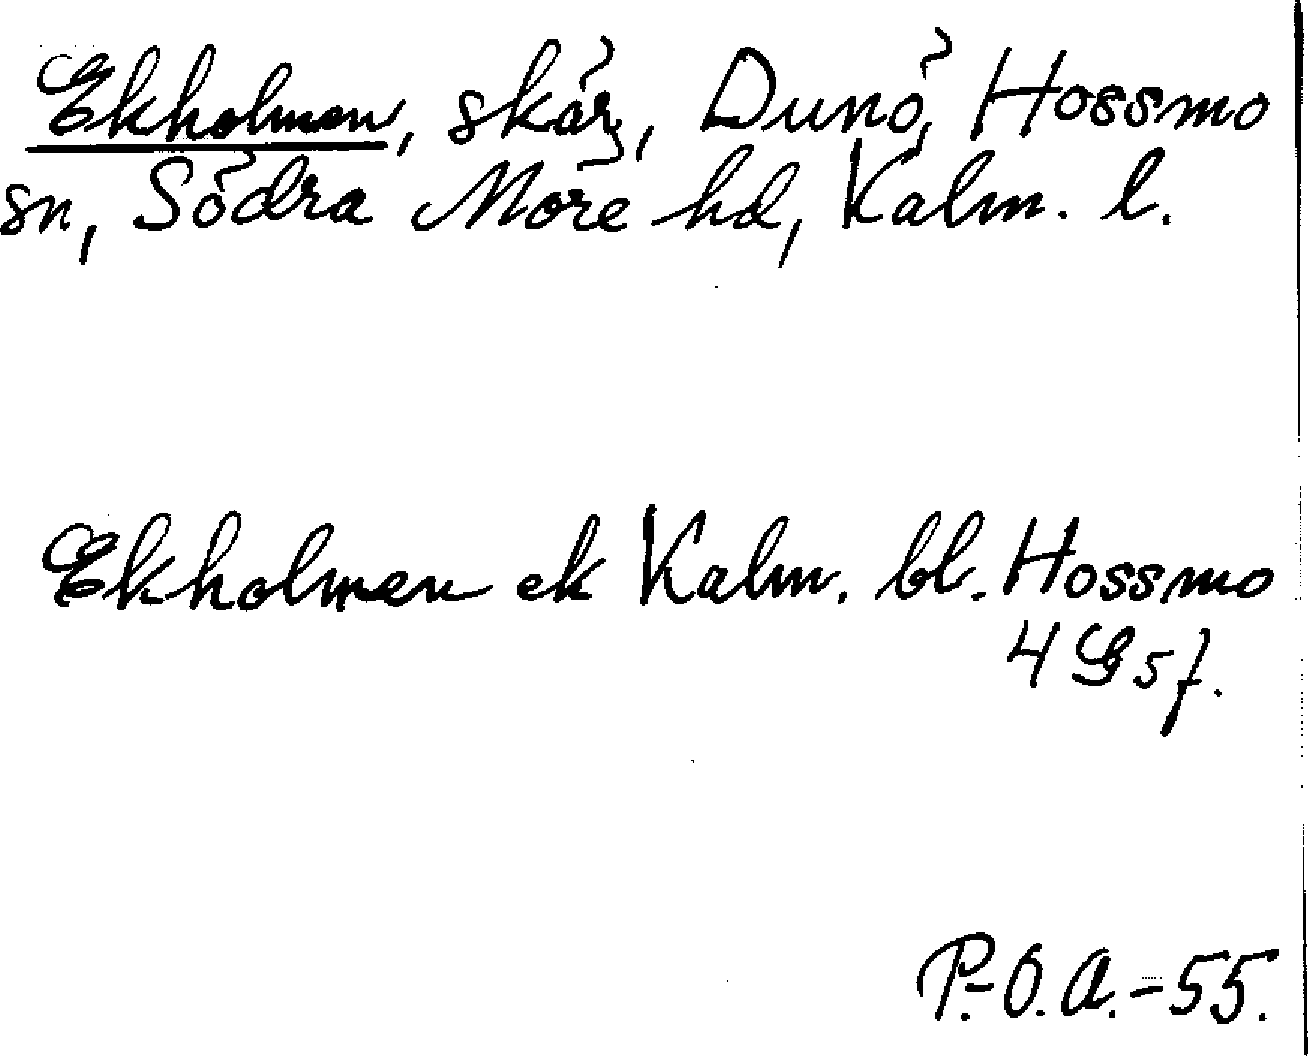 Ekholmen, skär, Dunö, Hossmo
sn, Södra Möre hd, Kalm. l.
Ekholmen ek Kalm. bl. Hossmo
4 G 5 f.
P.-O. A. -55.